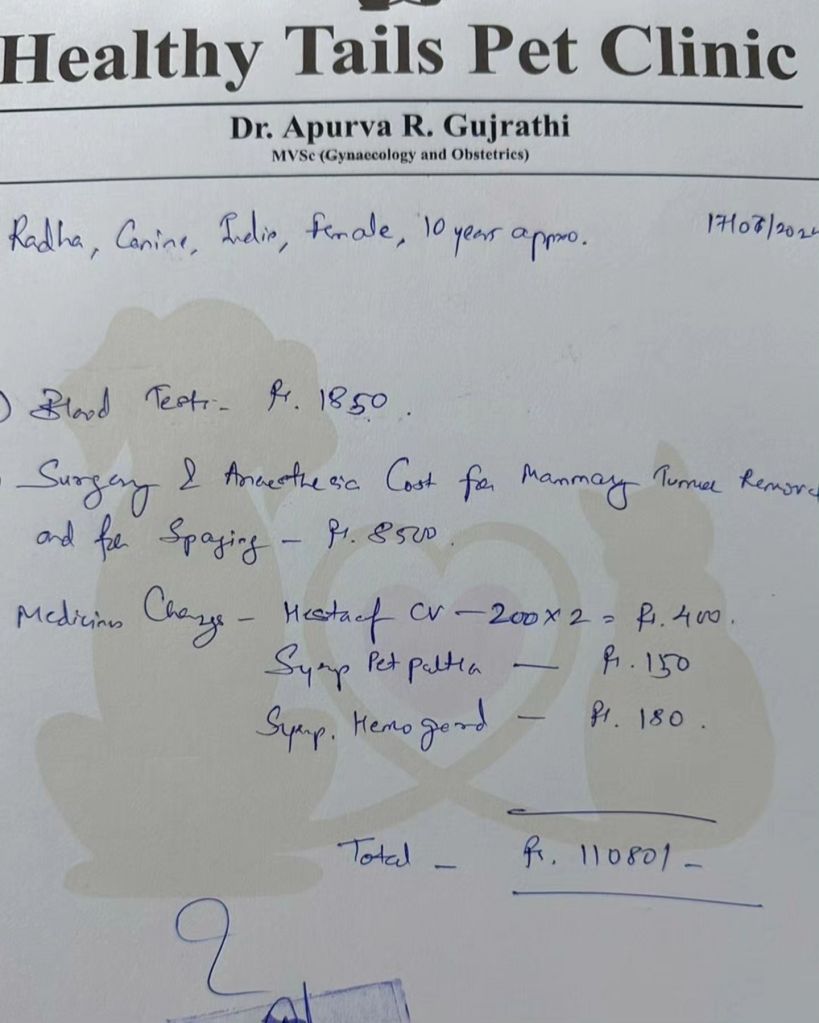 Healthy Tails Pet Clinic
Dr. Apurva R. Gujrathi
MVSc (Gynaecology and Obstetrics)
Radha, Canine, Indie, female, 10 years appro.
) Blood Test:- Rs. 1850.
Surgery & Anaesthesia Cost for Mammary Tumor Remov
and for Spaying - Rs. 8500.
Medicines Charge - CV - 200 x 2 = Rs. 400.
Syrup Pet — Rs. 150
Syrup. — Rs. 180.
Total - Rs. 11080/-